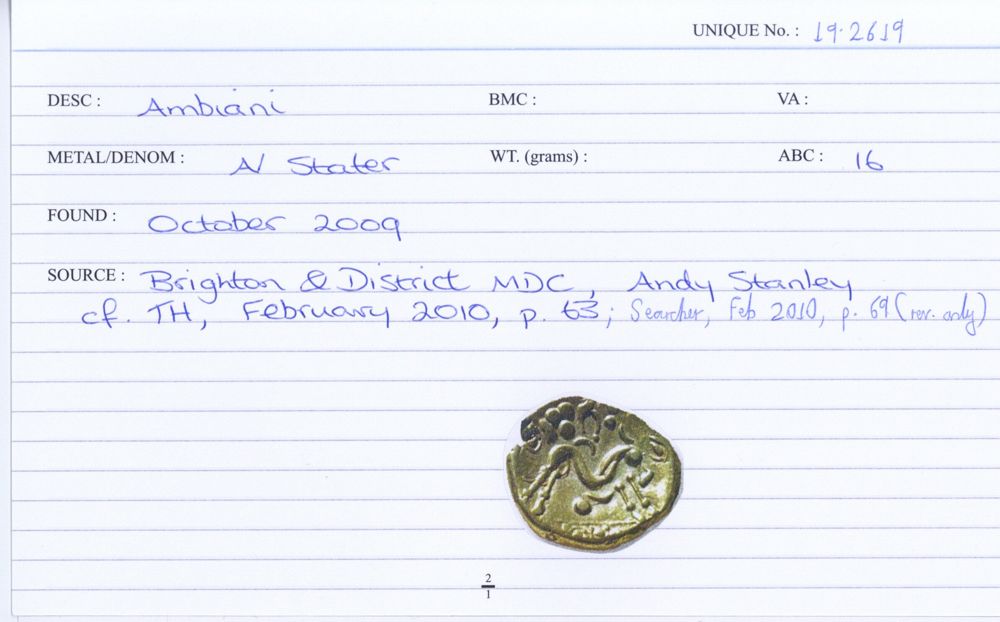 UNIQUE No. : 19.2619
DESC : Ambiani BMC : VA :
METAL/DENOM : A/ Stater WT. (grams) : ABC : 16
FOUND : October 2009
SOURCE : Brighton & District MDC, Andy Stanley
cf. TH, February 2010, p. 63; Searcher, Feb 2010, p. 69 (rev. only)
2
1